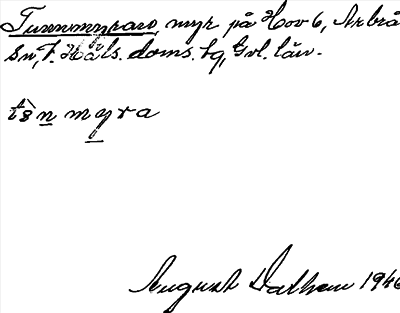 Tunnmyrarna, myr på Hov 6, Arbrå
sn, V. Häls. doms. sg, Gvl. län.
myra
August Dalhem 1946